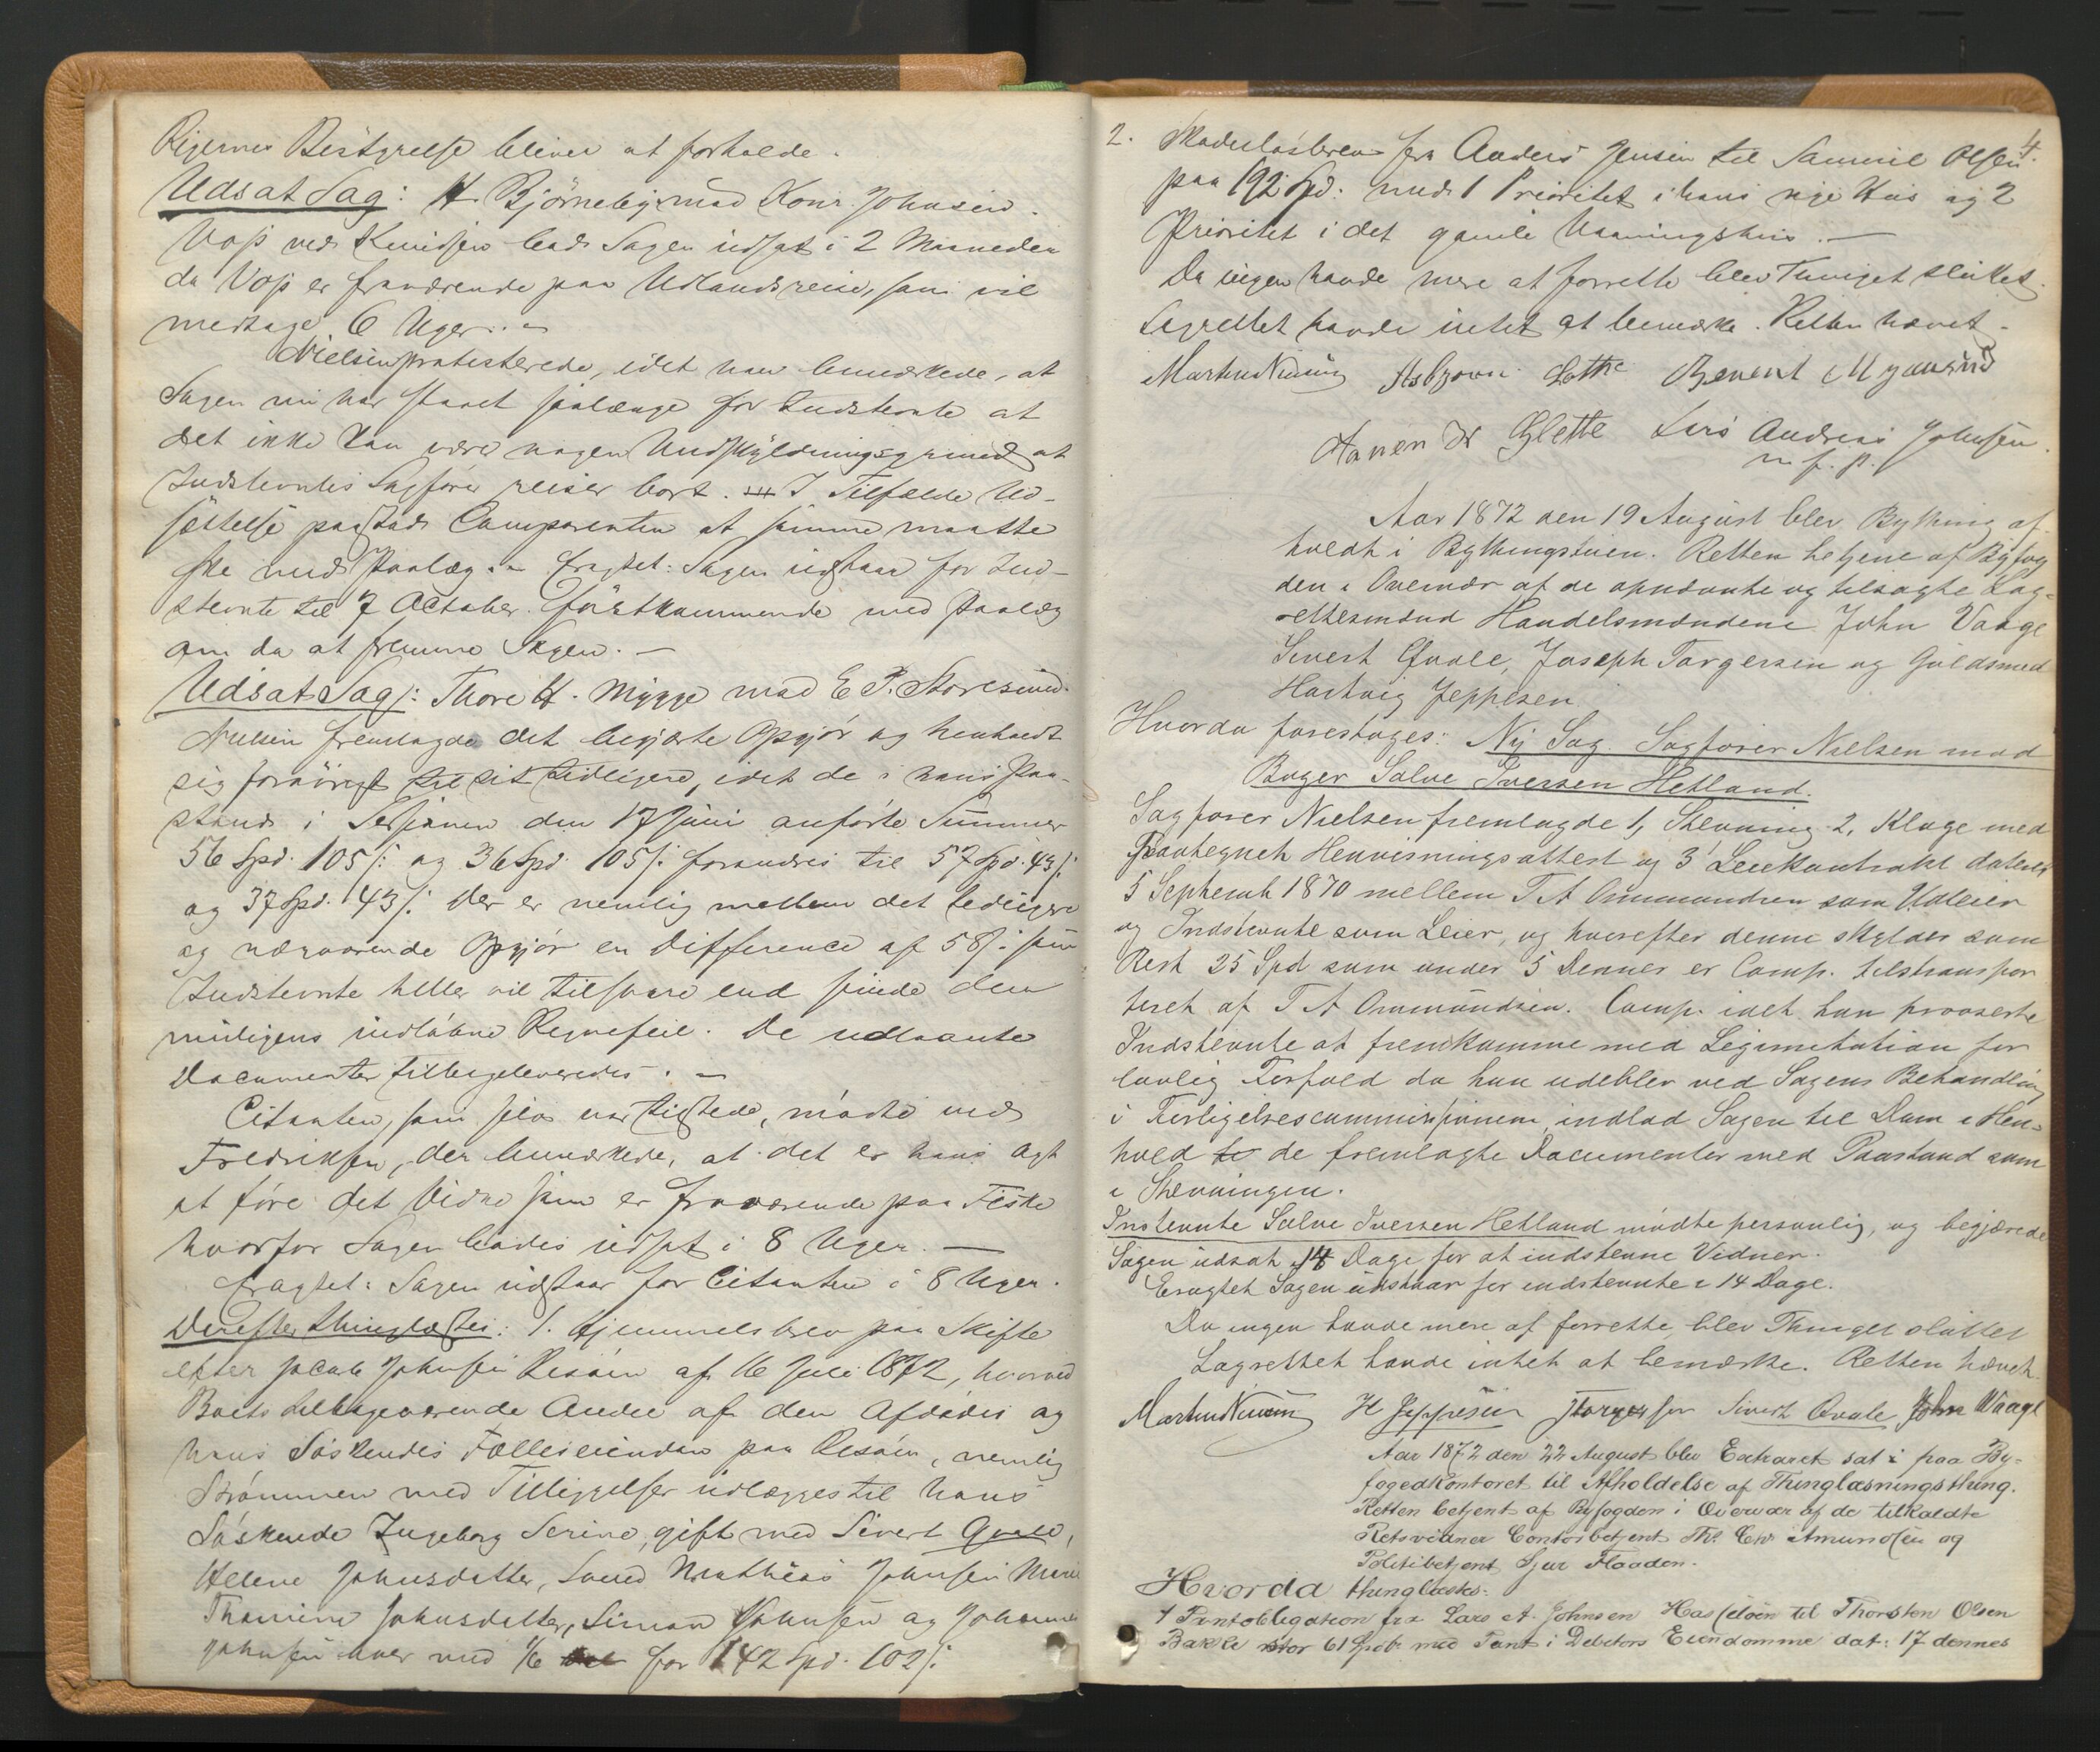 Rigernes Bestyrelse bliver at forholde.
Udsat Sag: H. Bjørneby mod Konr. Johnsen.
Voss ved Knudsen bad Sagen udsat i 2 Maaneder
da Voss er fraværende paa Udlandsreise, som vil
medtage 6 Uger. –
Nielsen protesterede, idet han bemærkede, at
Sagen nu har staaet saalænge for Indstevnte at
det ikke kan være nogen Undskyldningsgrund at
Indstevntes Sagfører reiser bort. I Tilfælde Ud-
sættelse paastod Comparenten at samme maatte
ske med Paalæg. – Eragtet: Sagen udstaar for Ind-
stevnte til 7 October førstkommende med Paalæg
om da at fremme Sagen. –
Udsat Sag: Thore H. Mygge mod E. P. Storesund.
Nielsen fremlagde det begjærte Opgjør og henholdt
sig forøvrigt til sit tidligere, idet de i hans Paa-
stand i Sessionen den 17 Juni anførte Summer
56 Spd. 105 s: og 36 Spd. 105 s: forandres til 57 Spd. 43 s:
og 37 Spd. 43 s: Der er nemlig mellem det tidligere
og nærværende Opgjør en Difference af 58 s: som
Indstevnte heller vil tilsvare end finde den
muligens indløbne Regnefeil. De udlaante
Documenter tilbageleveredes. –
Citanten, som selv var tilstede, mødte ved
Fredriksen, der bemærkede, at det er hans Agt
at føre det Vidne som er fraværende paa Fiske
hvorfor Sagen bades udsat i 8 Uger. –
Eragtet: Sagen udstaar for Citanten i 8 Uger.
Derefter thinglæstes: 1. Hjemmelsbrev paa Skifte
efter Jacob Johnsen Risøen af 16 Juli 1872, hvorved
Boets tilbageværende Andel af den Afdødes og
hans Søskendes Fælleseiendom paa Risøen, nemlig
Strømmen med Tilliggelser udlægges til hans
Søskende Ingeborg Serine, gift med Sivert Qvale,
Helene Johnsdatter, Svend Mathias Johnsen
Thomine Johnsdatter, Simon Johnsen og
Johnsen hver med 1/6 for 142 Spd. 102 s:
4.
2. Skadesløsbrev fra Anders Jensen til Samuel Olsen
paa 192 Spd. med 1 Prioritet i hans nye Hus og 2
Prioritet i det gamle Vaaningshus. –
Da ingen havde mere at forrette blev Thinget sluttet.
Lagrettet havde intet at bemærke. Retten hævet. –
Asbjørn Lothe
H Glette Lars Andreas Johnsen
m. f. p.
Aar 1872 den 19 August blev Bything af-
holdt i Bythingstuen. Retten betjent af Byfog
den i Overvær af de opnævnte og tilsagte Lag-
rettesmænd Handelsmændene John Vaage
Sivert Qvale, Joseph Torgersen og Guldsmed
Hartvig Jeppesen
Hvorda foretoges: Ny Sag. Sagfører Nielsen mod
Bager Salve Iversen Hetland.
Sagfører Nielsen fremlagde 1, Stevning 2, Klage med
paategnet Henvisningsattest og 3 Leiekontrakt dateret
5 Septemb 1870 mellem T A Ommundsen som Udleier
og Indstevnte som Leier, og hvorefter denne skylder som
Rest 25 Spd som under 5 Dennes er Comp. tiltranspor
teret af T A Ommundsen. Comp. idet han provoserte
Indstevnte at fremkomme med Legimitation for
lovlig Forfald da han udeblev ved Sagens Behandling
i Forligelsescommissionen, indlod Sagen til Dom i Hen-
hold de fremlagte Documenter med Paastand som
i Stevningen.
Instevnte Salve Iversen Hetland mødte personlig, og begjærede
Sagen udsat 14 Dage for at indstevne Vidner.
Eragtet Sagen udstaar for indstevnte i 14 Dage.
Da ingen havde mere at forrette, blev Thinget sluttet
Lagrettet havde intet at bemærke. Retten hævet.
H Jeppesen JTorgersen Sivert Qvale John Waage
Aar 1872 den 22 August blev Extraret sat i paa By-
fogedkontoret til Afholdelse af Thinglæsningsthing.
Retten betjent af Byfogden i Overvær af de tilkaldte
Retsvidner Contorbetjent Th. Chr. Amundsen og
Politibetjent Sjur Flaaden.
Hvorda thinglæstes:
1 Pantobligation fra Lars A. Johnsen Hasseløen til Thorsten Olsen
Bakke stor 61 Spd. med Pant i Debitors Eiendomme dat: 17 dennes